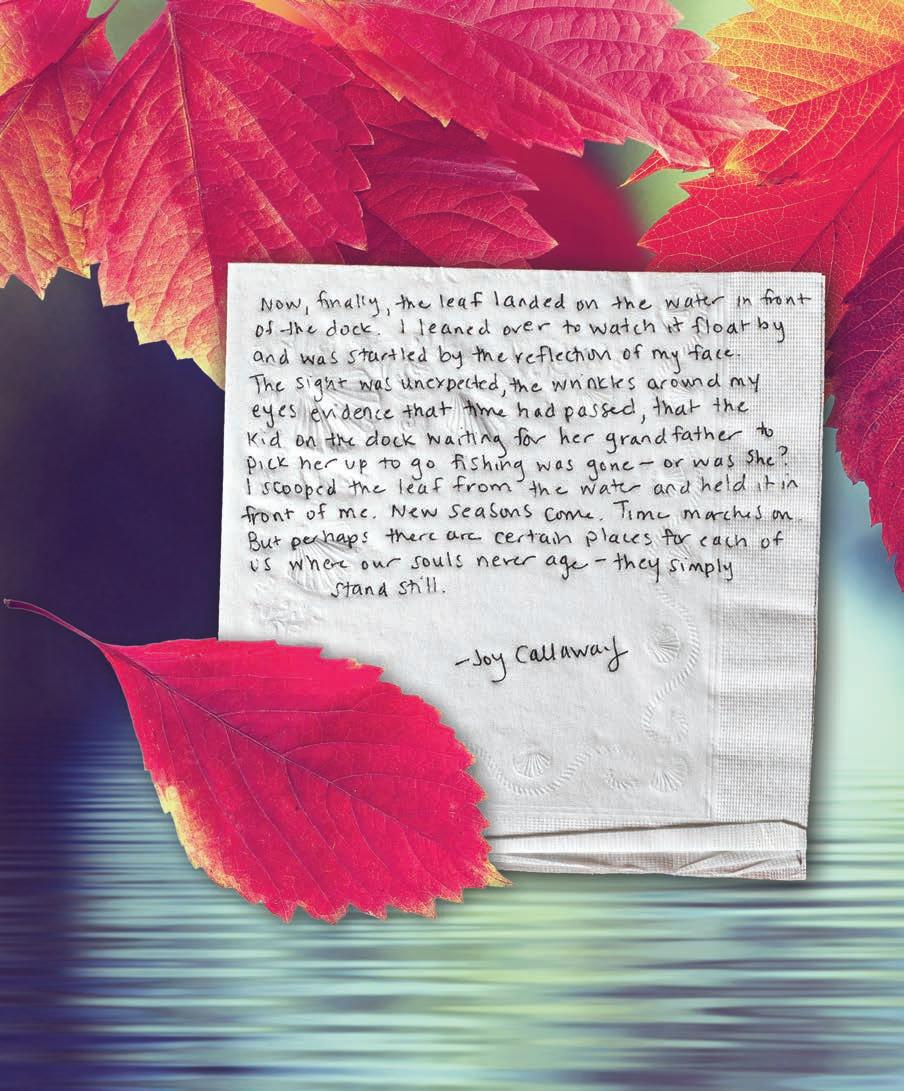 Now, finally, the leaf landed on the water in front
of the dock. I leaned over to watch it float by
and was startled by the reflection of my face.
The sight was unexpected, the wrinkles around my
eyes evidence that time had passed, that the
kid on the dock waiting for her grandfather to
pick her up to go fishing was gone - or was she?
I scooped the leaf from the water and held it in
front of me. New seasons come. Time marches on.
But perhaps there are certain places for each of
us where our souls never age - they simply
stand still.
-Joy Callaway